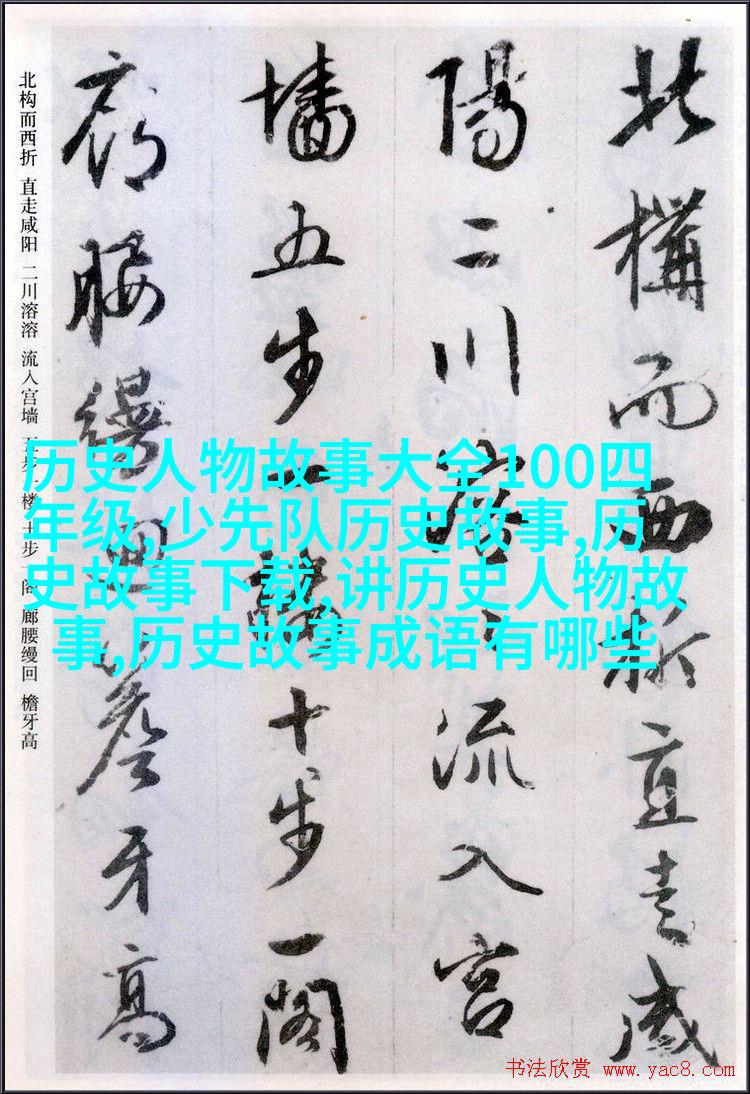 北構而西折直走咸
陽二川溶〻流入宮
墻五步一樓十步一閣
廊腰縵迴簷牙高
北构而西折 直走咸阳 二川溶溶 流入宫墙 五步一楼 十步一阁 廊腰缦回 檐牙高
历史人物故事大全100四
年级,少先队历史故事,历
史故事下载,讲历史人物故
事,历史故事成语有哪些
书法欣赏 www.yac8.com